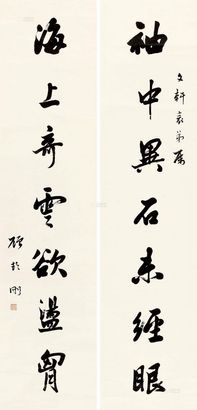 文軒弟屬
袖中異石未經眼
海上奇雲欲盪胷